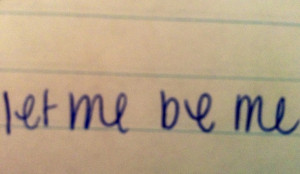 let me be me